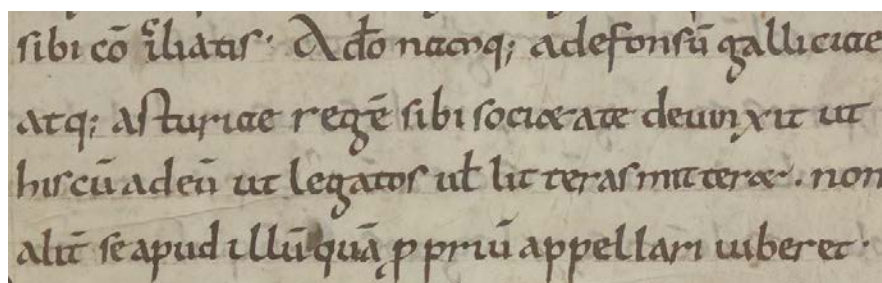 sibi cō ciliatis· Adło namq; adefonsū galliciae
atq; asturiae regē sibi sociætate deuinxit ut
hiscū adeū ut legatos uł lit teras mitteræ·. non
alit̄ se apud illū quā ꝓpriū appellari iuberet·